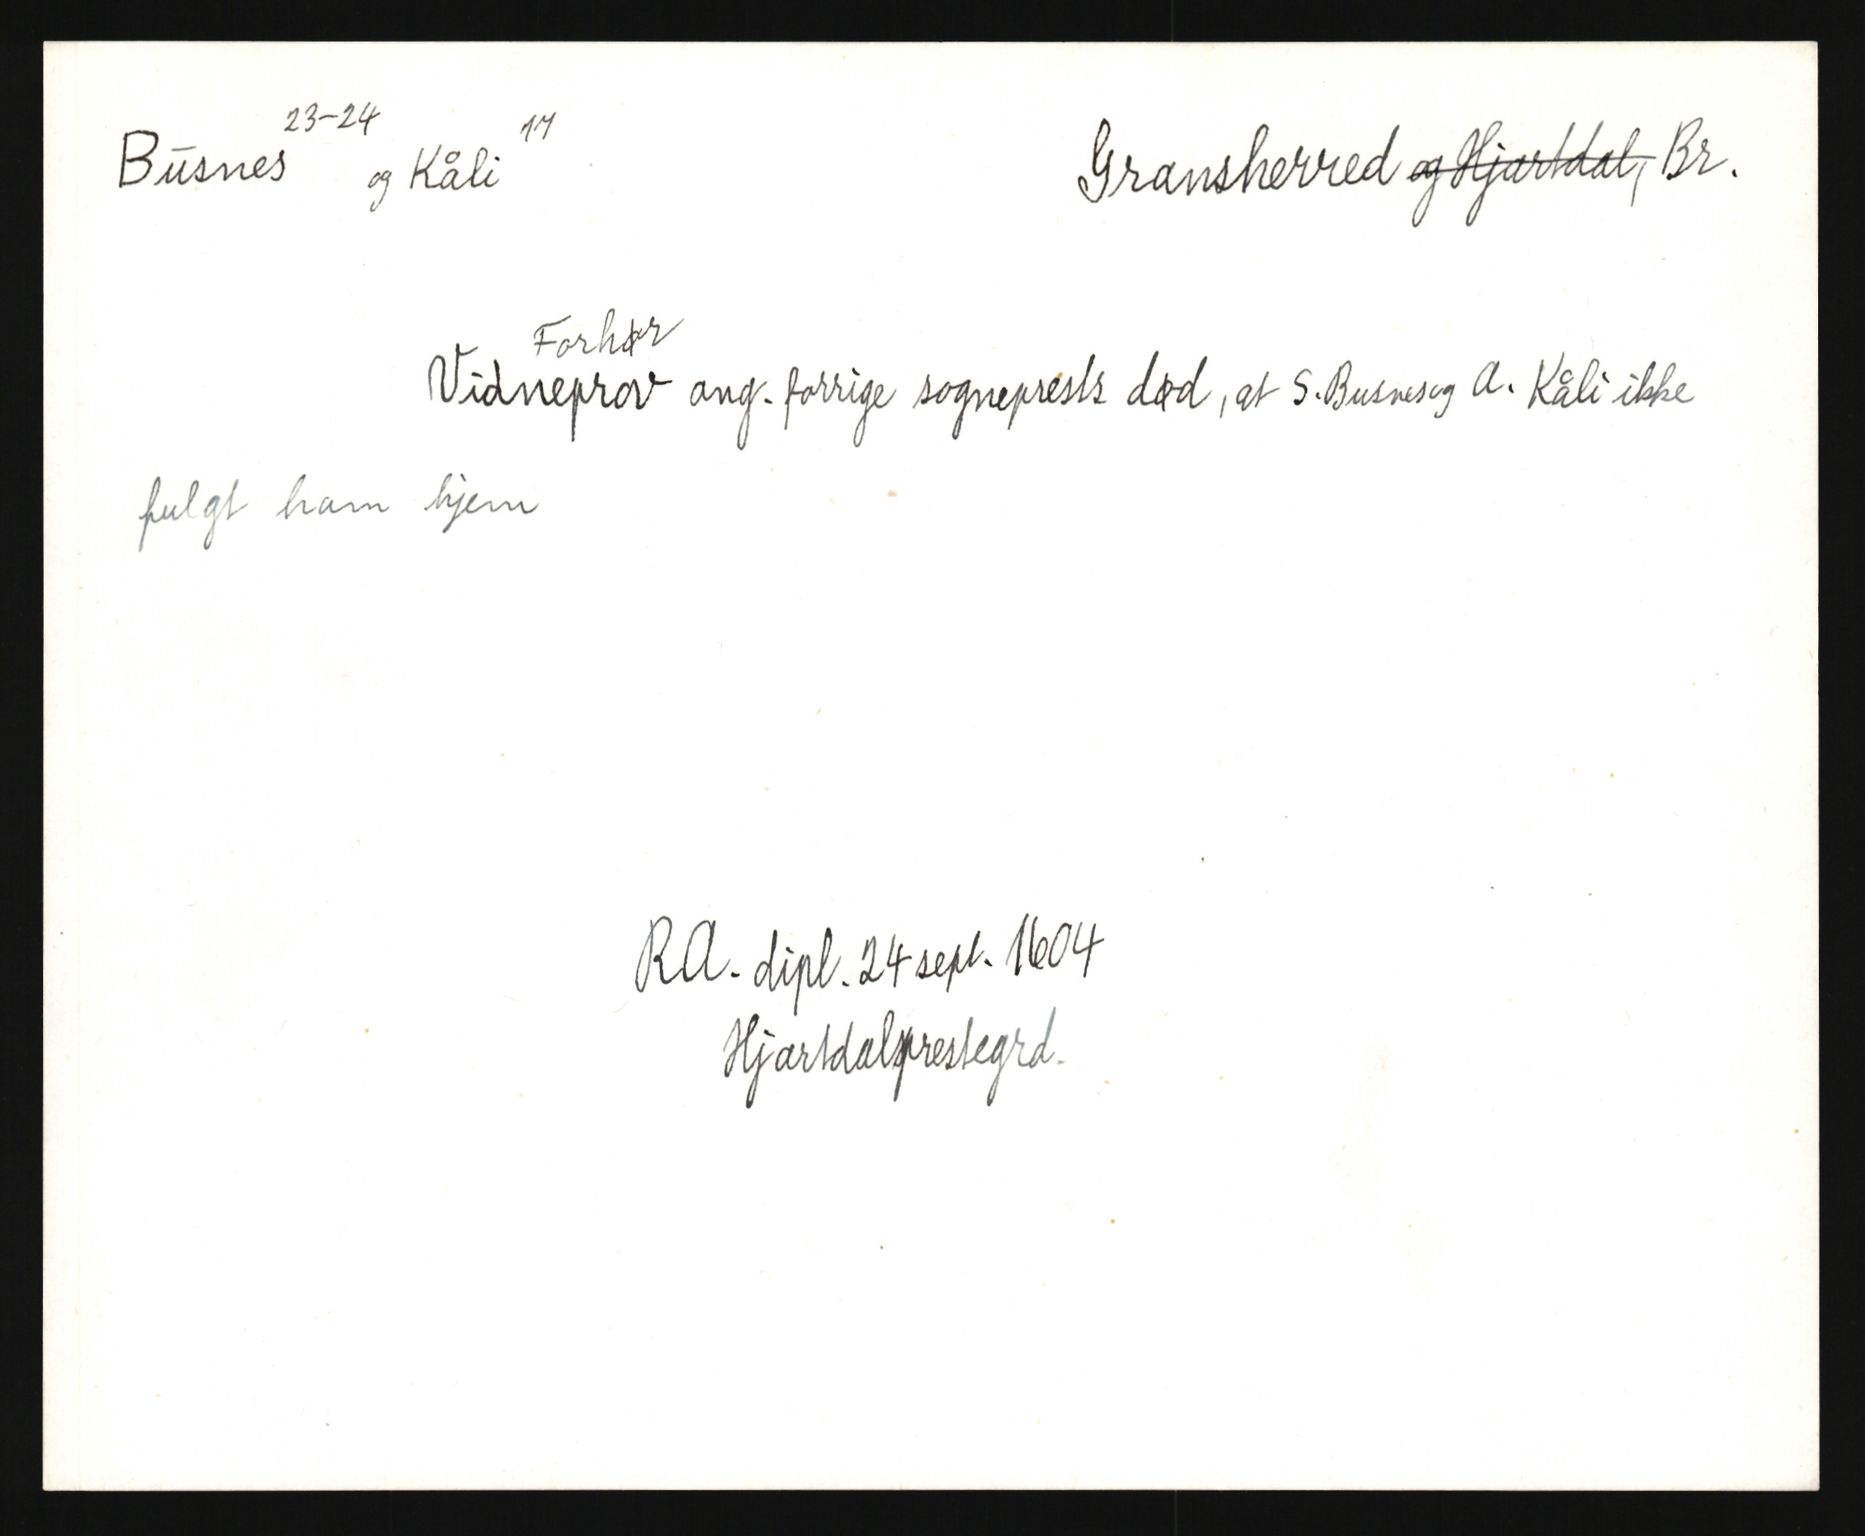 Busnes 23-24 og Kåli 17 Gransherred ~~og Hjartdal,~~ Br.
Forhør
Vidneprov ang. forrige sogneprests død, at S. Busnes og A. Kåli ikke
fulgt ham hjem
RA. dipl. 24 sept. 1604
Hjartdalsprestegrd.